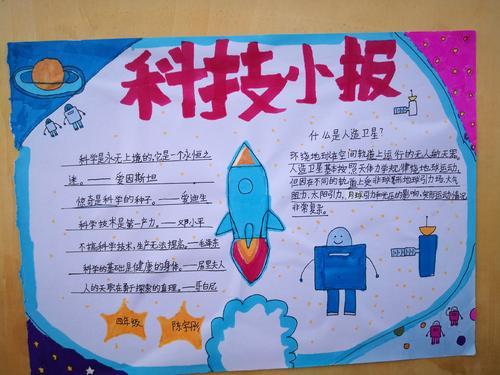 科技小报
科学是永无止境的,它是一个永恒之
迷。——爱因斯坦
惊奇是科学的种子。——爱迪生
科学技术是第一产力。——邓小平
不搞科学技术,生产无法提高。——毛泽东
科学的基础是健康的身体。——居里夫人
人的天职在勇于探索的真理。——哥白尼
四年级
陈宇彤
什么是人造卫星?
环绕地球在空间轨道上运行的无人的天器。
人造卫星基本按照天体力学规律绕地球运动,
但因在不同的轨道上受非球形地球引力场、大气
阻力、太阳引力、月球引力和光压的影响,实际运动情况
非常复杂。